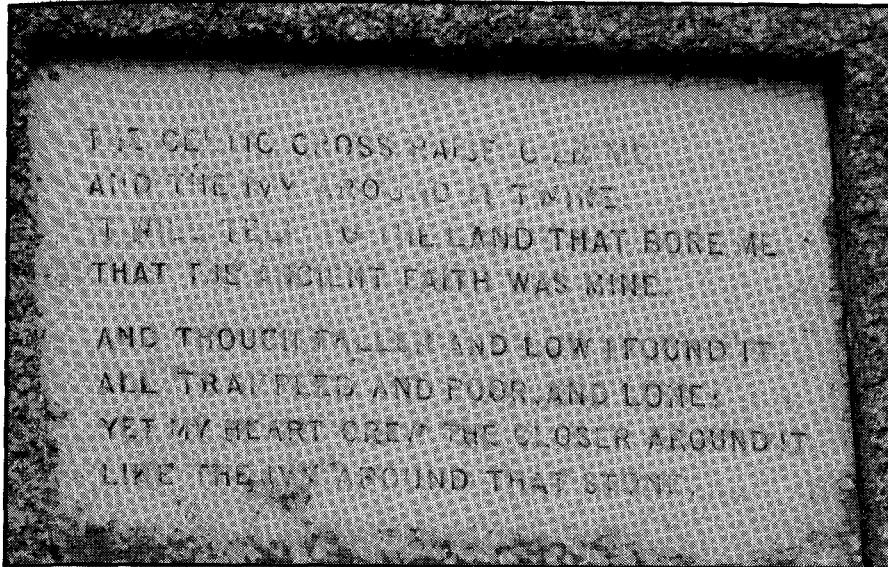 THE CELTIC CROSS RAISE O'ER ME
AND THE IVY AROUND IT TWINE
T WILL TELL TO THE LAND THAT BORE ME
THAT THE ANCIENT FAITH WAS MINE.
AND THOUGH FALLEN AND LOW I FOUND IT.
ALL TRAMPLED AND POOR, AND LONE,
YET MY HEART GREW THE CLOSER AROUND IT
LIKE THE IVY AROUND THAT STONE.